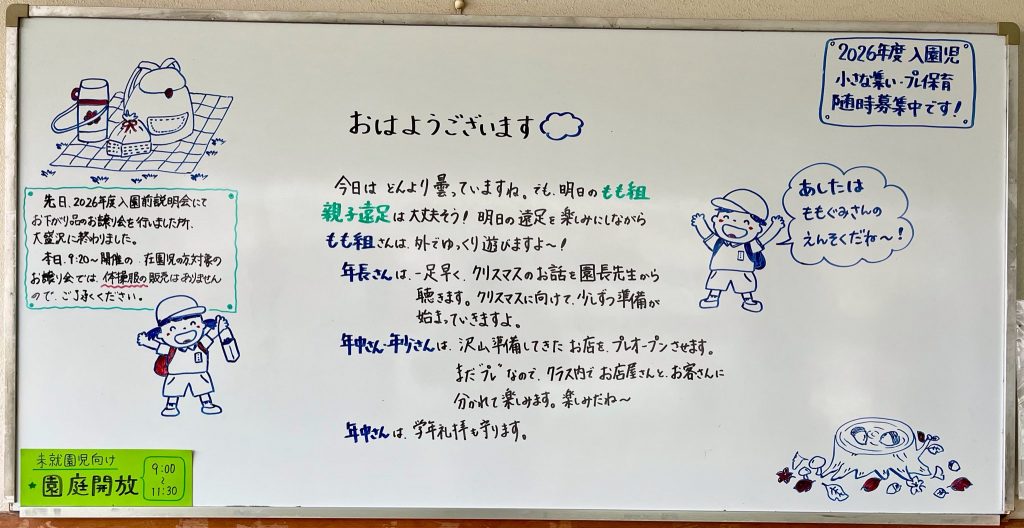 2026年度 入園児
小さな集い・プレ保育
随時募集中です!
おはようございます
今日は どんより曇っていますね。でも、明日の もも組
親子遠足は大丈夫そう! 明日の遠足を楽しみにしながら
もも組さんは、外でゆっくり遊びますよ〜!
年長さんは、一足早く、クリスマスのお話を園長先生から
聴きます。クリスマスに向けて、少しずつ準備が
始まっていきますよ。
年中さん・年少さんは、沢山準備してきた お店を、プレオープンさせます。
まだ"プレ"なので、クラス内で お店屋さんと、お客さんに
分かれて楽しみます。楽しみだね〜
年中さんは、学年礼拝も守ります。
あしたは
ももぐみさんの
えんそくだね〜!
先日、2026年度入園前説明会にて
お下がり品のお譲り会を行いました所、
大盛況に終わりました。
本日、9:20〜開催の 在園児の方対象の
お譲り会では、体操服の販売はありません
ので、ご了承ください。
未就園児向け
園庭開放
9:00
〜
11:30